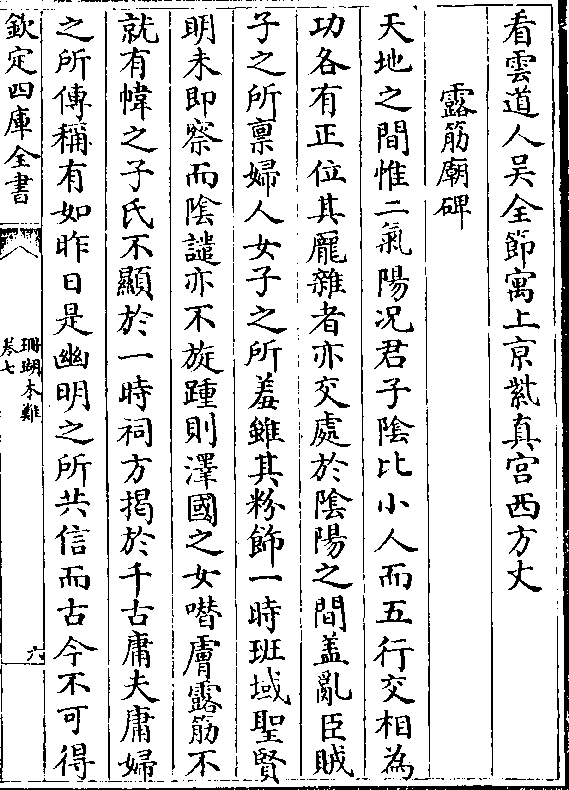 看雲道人吳全節寓上京紫真宫西方丈
露筋廟碑
天地之間惟二氣陽况君子陰比小人而五行交相為
功各有正位其龎雜者亦交處於陰陽之間盖亂臣賊
子之所禀婦人女子之所羞雖其粉飾一時班域聖賢
明未即察而陰譴亦不旋踵則澤國之女噆膚露筋不
就有幃之子氏不顯於一時祠方揭於千古庸夫庸婦
之所傳稱有如昨日是幽明之所共信而古今不可得
欽定四庫全書
珊瑚木難
卷七
六